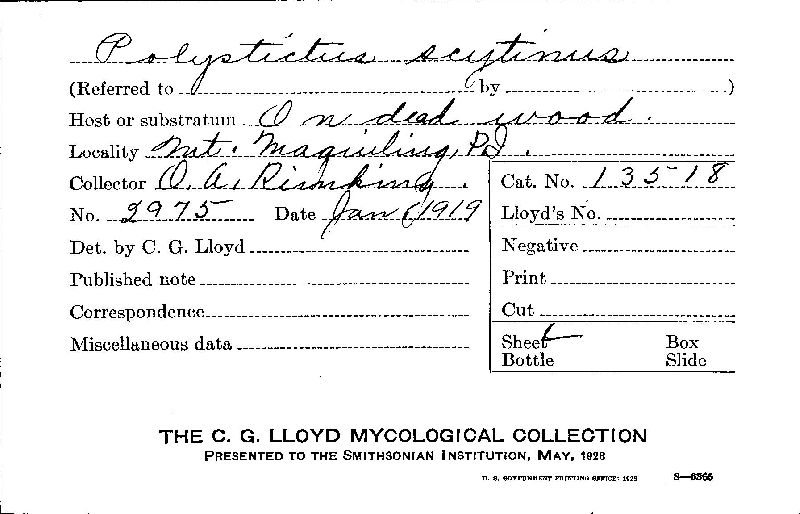 Polystictus scytinus
(Referred to by )
Host or substratum On dead wood.
Locality Mt. Maquiling, P.I.
Collector O. A. Reinking.
Cat. No. 13518
No. 2975 Date Jan 1919
Lloyd's No.
Det. by C. G. Lloyd
Negative
Published note
Print
Correspondence
Cut
Miscellaneous data
Sheet Box
Bottle Slide
THE C. G. LLOYD MYCOLOGICAL COLLECTION
PRESENTED TO THE SMITHSONIAN INSTITUTION, MAY, 1928
U. S. GOVERNMENT PRINTING OFFICE: 1928 8—6366